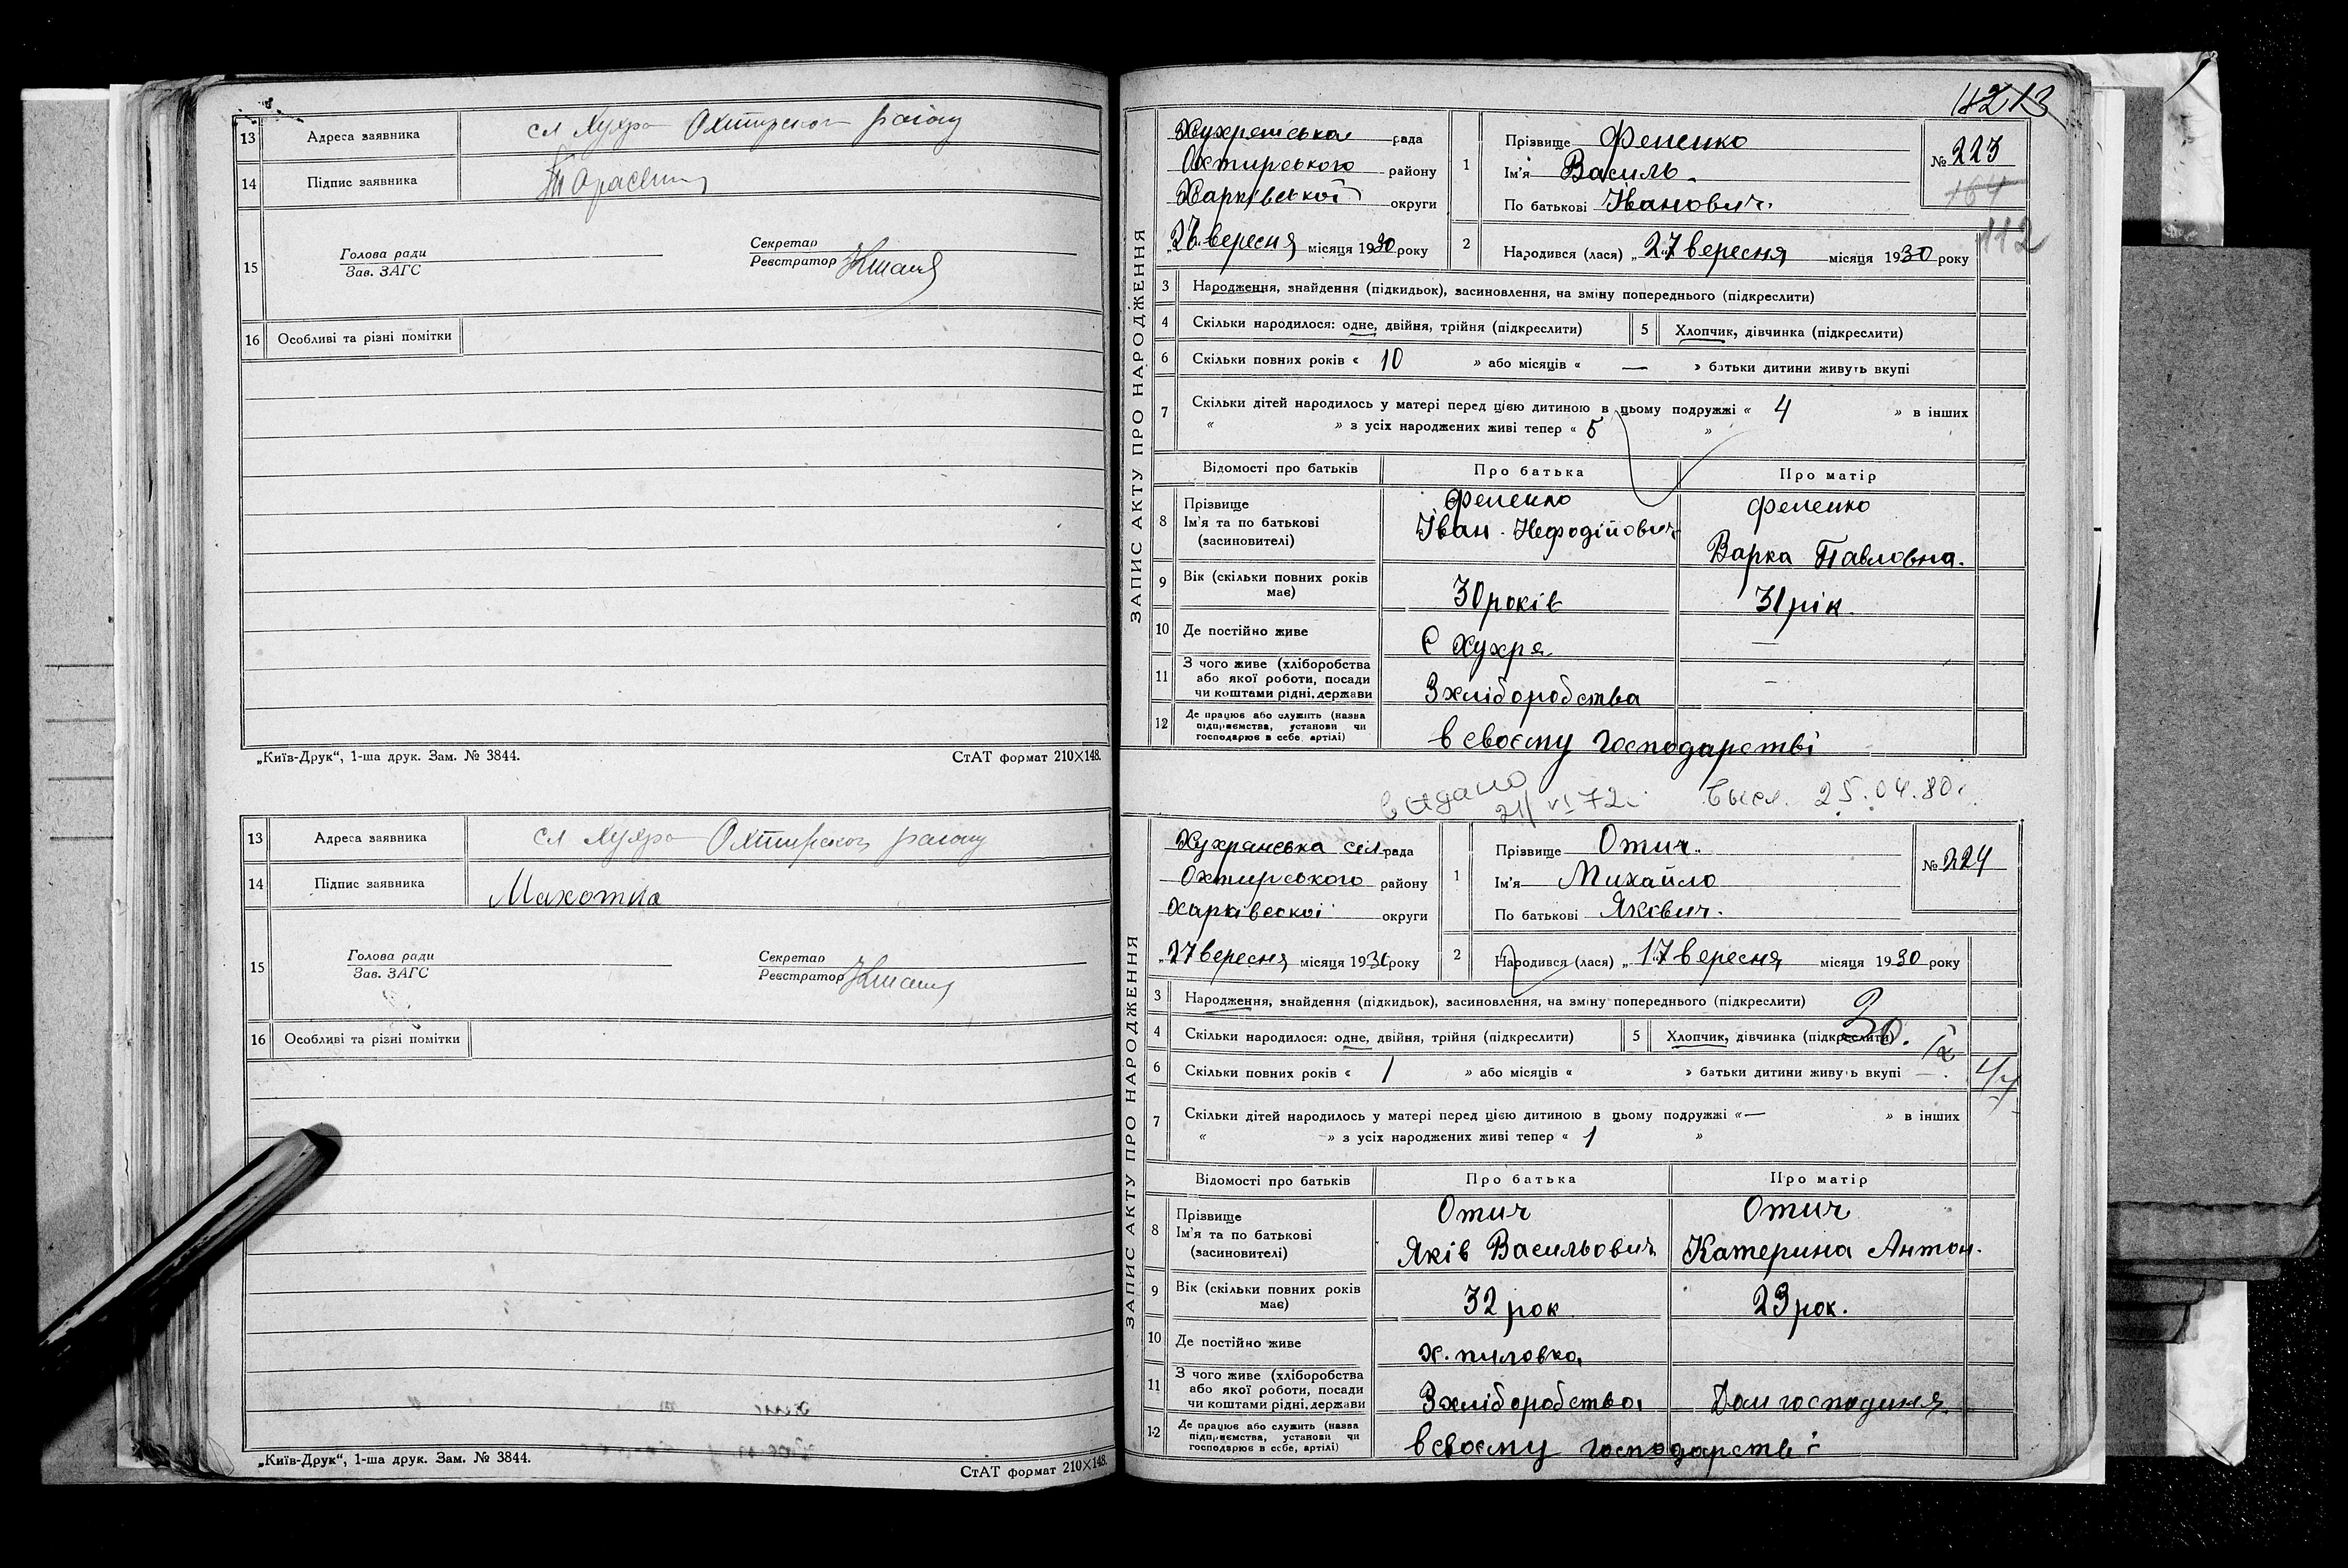 13 Адреса заявника сл Хухра Охтирського району
14 Підпис заявника
15 Голова ради
Зав. ЗАГС
Секретар
Реєстратор
16 Особливі та різні помітки
„Київ-Друк“, 1-ша друк. Зам. № 3844. СтАТ формат 210×148.
13 Адреса заявника сл Хухра Охтирського району
14 Підпис заявника Махотка
15 Голова ради
Зав. ЗАГС
Секретар
Реєстратор
16 Особливі та різні помітки
„Київ-Друк“, 1-ша друк. Зам. № 3844. СтАТ формат 210×148.
ЗАПИС АКТУ ПРО НАРОДЖЕННЯ
рада
Охтирського району
Харківської округи
вересня місяця 1930 року
1 Прізвище Фененко
Ім'я Василь
По батькові Іванович.
№ 223
164
112
2 Народився (лася) „27 вересня місяця 1930 року
3 Народження, знайдення (підкидьок), засиновлення, на зміну попереднього (підкреслити)
4 Скільки народилося: одне, двійня, трійня (підкреслити) 5 Хлопчик, дівчинка (підкреслити)
6 Скільки повних років « 10 » або місяців « — » батьки дитини живуть вкупі
7 Скільки дітей народилось у матері перед цією дитиною в цьому подружжі « 4 » в інших
« » з усіх народжених живі тепер « 5 »
Відомості про батьків Про батька Про матір
8 Прізвище Фененко Фененко
Ім'я та по батькові Іван Нефодійович
(засновителі) Варка Павловна.
9 Вік (скільки повних років має) 30 років 31 рік.
10 Де постійно живе С Хухря —
11 З чого живе (хліборобства або якої роботи, посади чи коштами рідні, держави З хліборобства —
12 Де працює або служить (назва підприємства, установи чи господарює в себе, артілі) в своєму господарстві
видано
21/VI 72г. Высл. 25.04.80г.
ЗАПИС АКТУ ПРО НАРОДЖЕННЯ
Хухранська сіл. рада
Охтирського району
Харківської округи
„27 вересня місяця 1930 року
1 Прізвище Отич.
Ім'я Михайло
По батькові Якович.
№ 224
2 Народився (лася) „17 вересня місяця 1930 року
3 Народження, знайдення (підкидьок), засиновлення, на зміну попереднього (підкреслити)
4 Скільки народилося: одне, двійня, трійня (підкреслити) 5 Хлопчик, дівчинка (підкреслити)
6 Скільки повних років « 1 » або місяців « » батьки дитини живуть вкупі
7 Скільки дітей народилось у матері перед цією дитиною в цьому подружжі « — » в інших
« » з усіх народжених живі тепер « 1 »
Відомості про батьків Про батька Про матір
8 Прізвище Отич Отич
Ім'я та по батькові Яків Васильович Катерина Антон.
(засиновителі)
9 Вік (скільки повних років має) 32 рок 23 рок.
10 Де постійно живе х. пиловка
11 З чого живе (хліборобства або якої роботи, посади чи коштами рідні, держави З хліборобства Дом господиня
12 Де працює або служить (назва підприємства, установи чи господарює в себе, артілі) в своєму господарстві